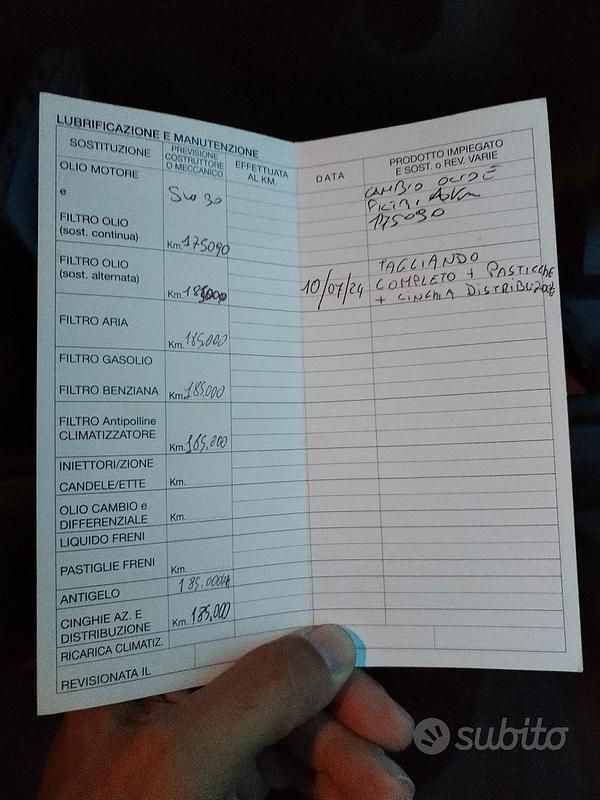 LUBRIFICAZIONE E MANUTENZIONE
SOSTITUZIONE
PREVISIONE
COSTRUTTORE
O MECCANICO
EFFETTUATA
AL KM
OLIO MOTORE
e
5W30
FILTRO OLIO
(sost. continua)
Km. 175090
FILTRO OLIO
(sost. alternata)
Km. 185000
FILTRO ARIA
Km. 185.000
FILTRO GASOLIO
FILTRO BENZIANA
Km. 185.000
FILTRO Antipolline
CLIMATIZZATORE
Km. 185.000
INIETTORI/ZIONE
CANDELE/ETTE
Km.
OLIO CAMBIO e
DIFFERENZIALE
Km.
LIQUIDO FRENI
PASTIGLIE FRENI
Km.
ANTIGELO
185.000
CINGHIE AZ. E
DISTRIBUZIONE
Km. 185.000
RICARICA CLIMATIZ.
REVISIONATA IL
DATA
PRODOTTO IMPIEGATO
E SOST. o REV. VARIE
CAMBIO
175090
10/07/24
TAGLIANDO
COMPLETO + PASTICCHE
+ CINGHIA DISTRIBUZIONE
subito